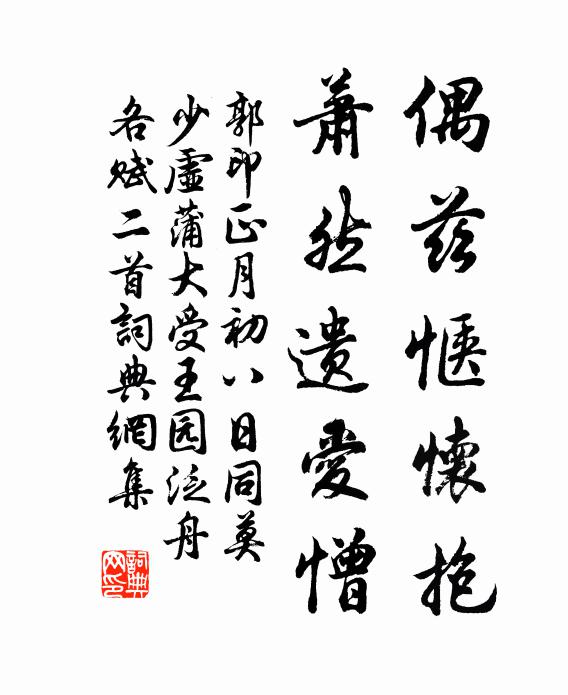 偶兹惬懷抱
蕭然遺愛憎
郭印正月初八日同莫
少虛蒲大受王园泛舟
各赋二首詞典網集
詞典網印